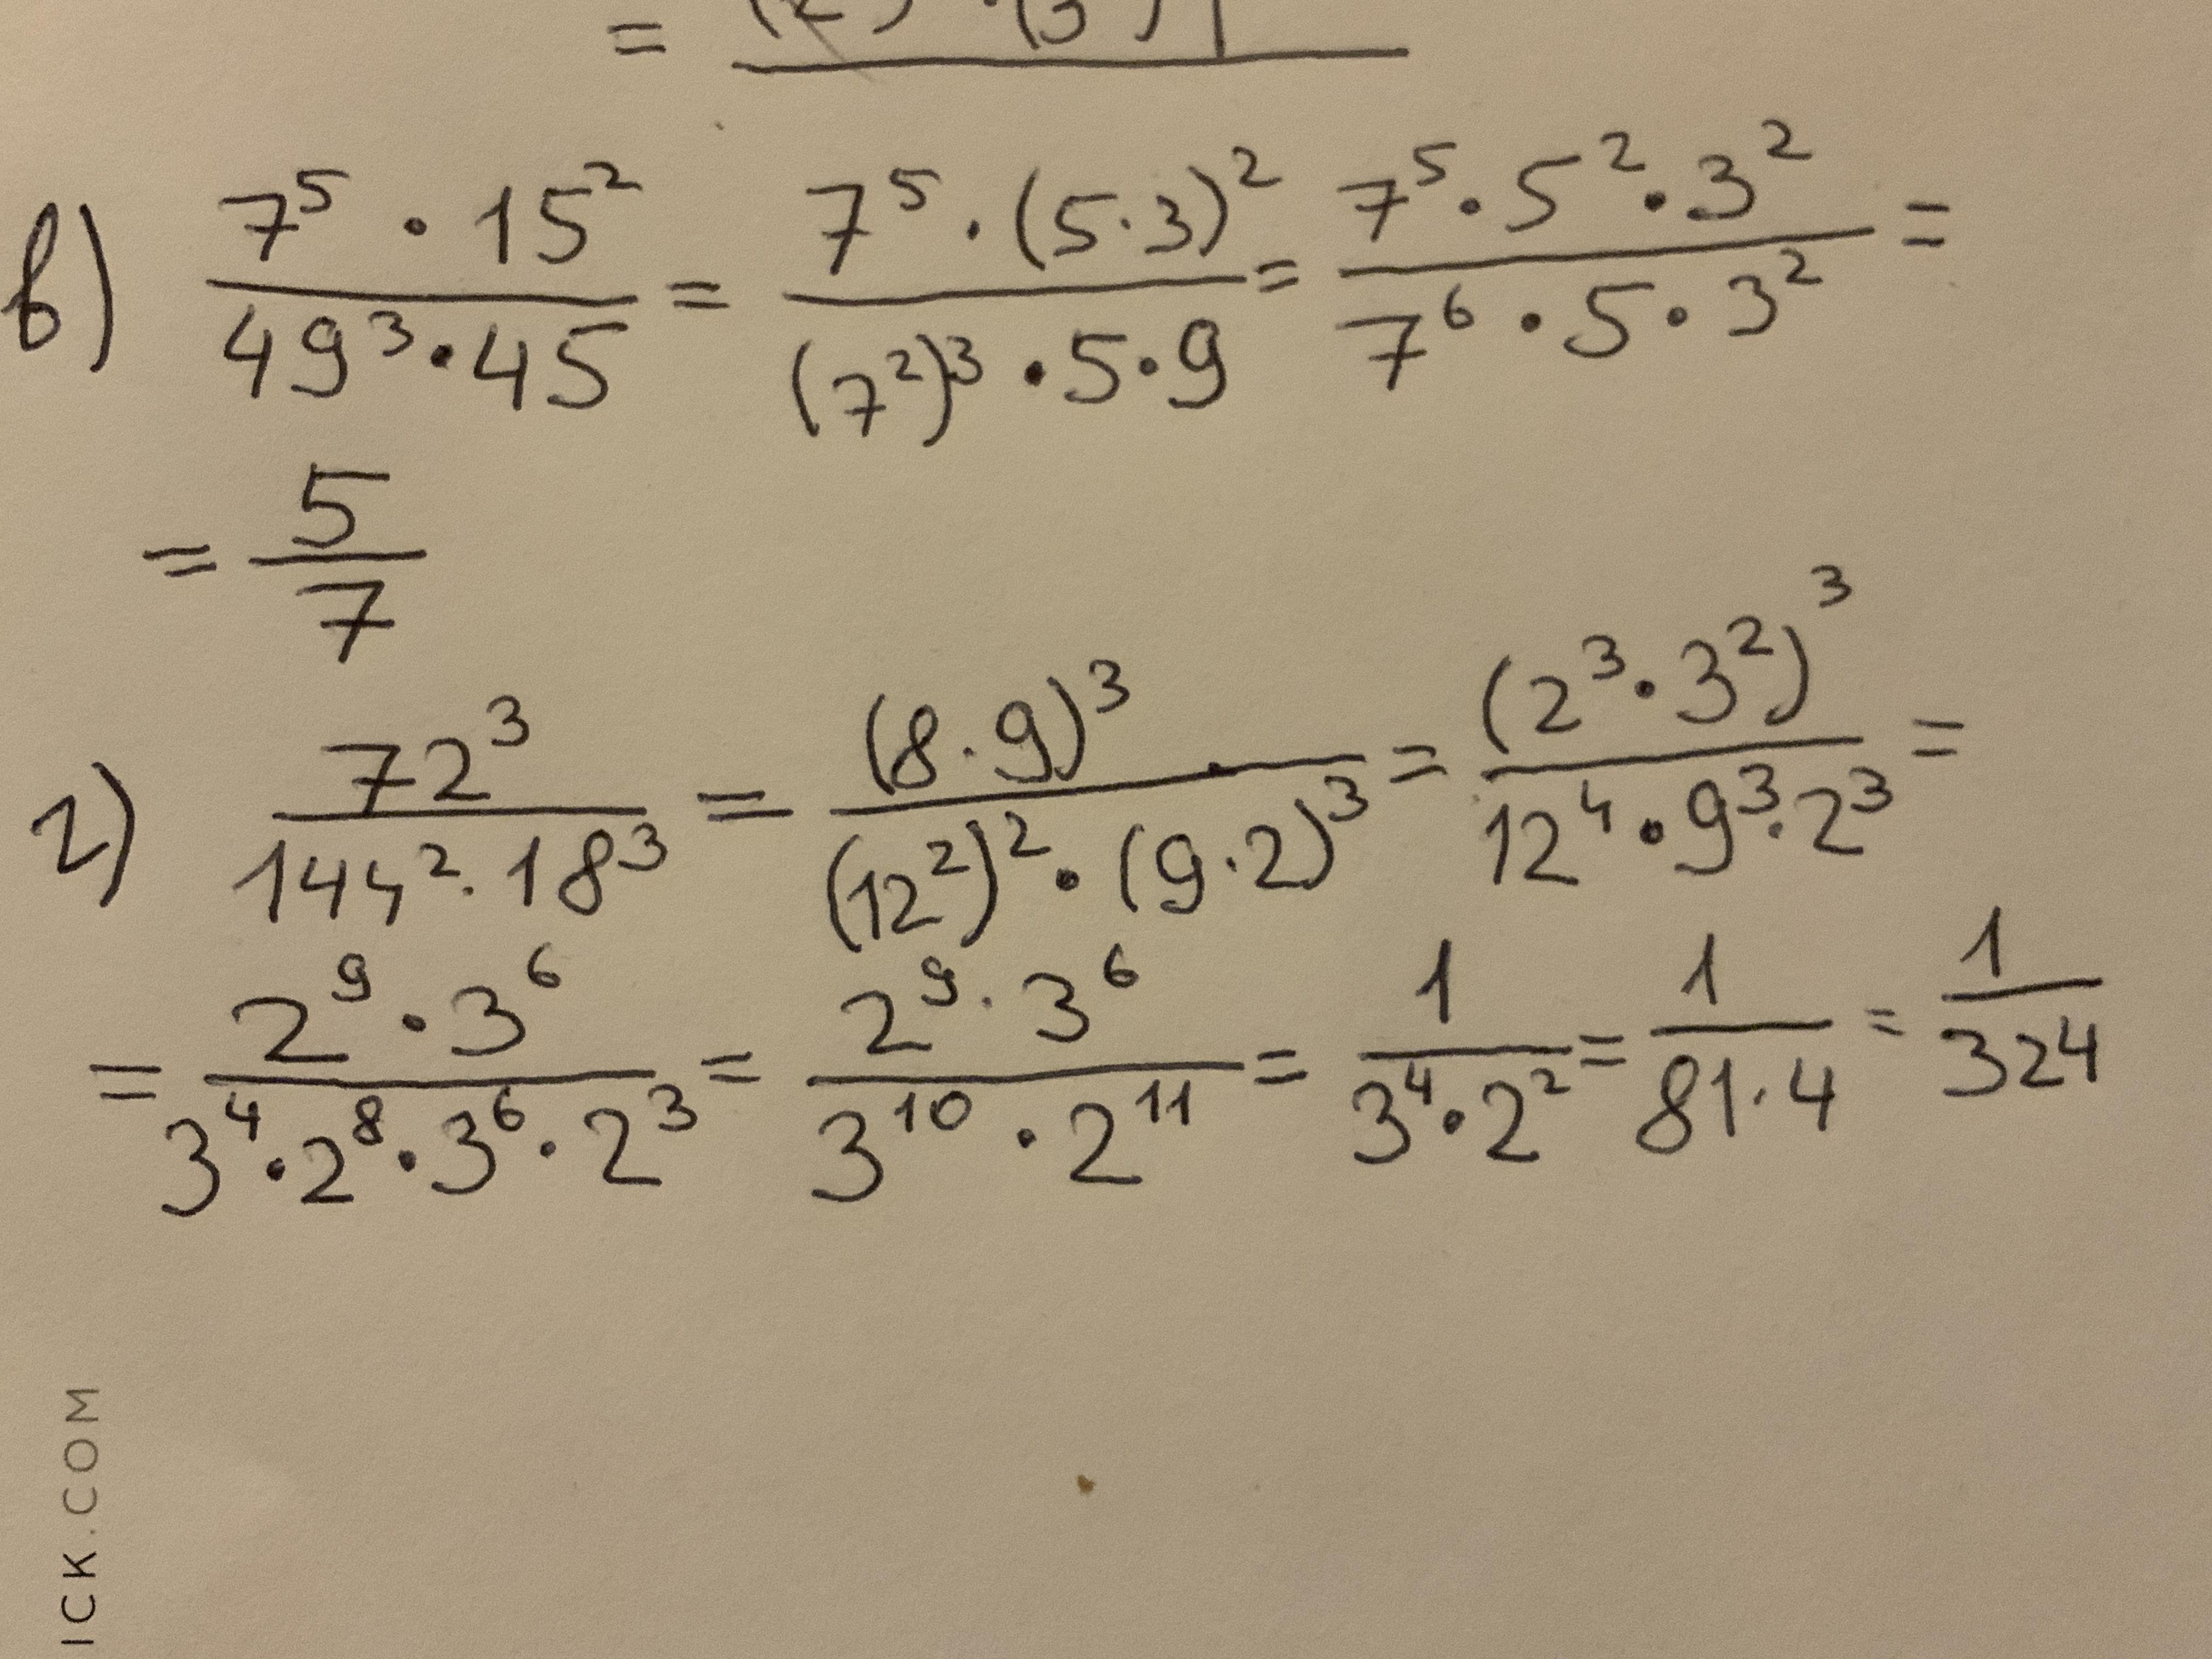 =
в) 7⁵ · 15² / 49³ · 45 = 7⁵ · (5 · 3)² / (7²)³ · 5 · 9 = 7⁵ · 5² · 3² / 7⁶ · 5 · 3² =
= 5 / 7
г) 72³ / 144² · 18³ = (8 · 9)³ / (12²)² · (9 · 2)³ = (2³ · 3²)³ / 12⁴ · 9³ · 2³ =
= 2⁹ · 3⁶ / 3⁴ · 2⁸ · 3⁶ · 2³ = 2⁹ · 3⁶ / 3¹⁰ · 2¹¹ = 1 / 3⁴ · 2² = 1 / 81 · 4 = 1 / 324
ICK.COM